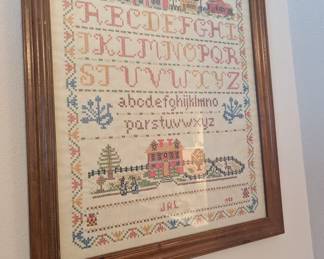 ABCDEFGHI
JKLMNOPQR
STUVWXYZ
abcdefghijklmno
pqrstuvwxyz
JAL